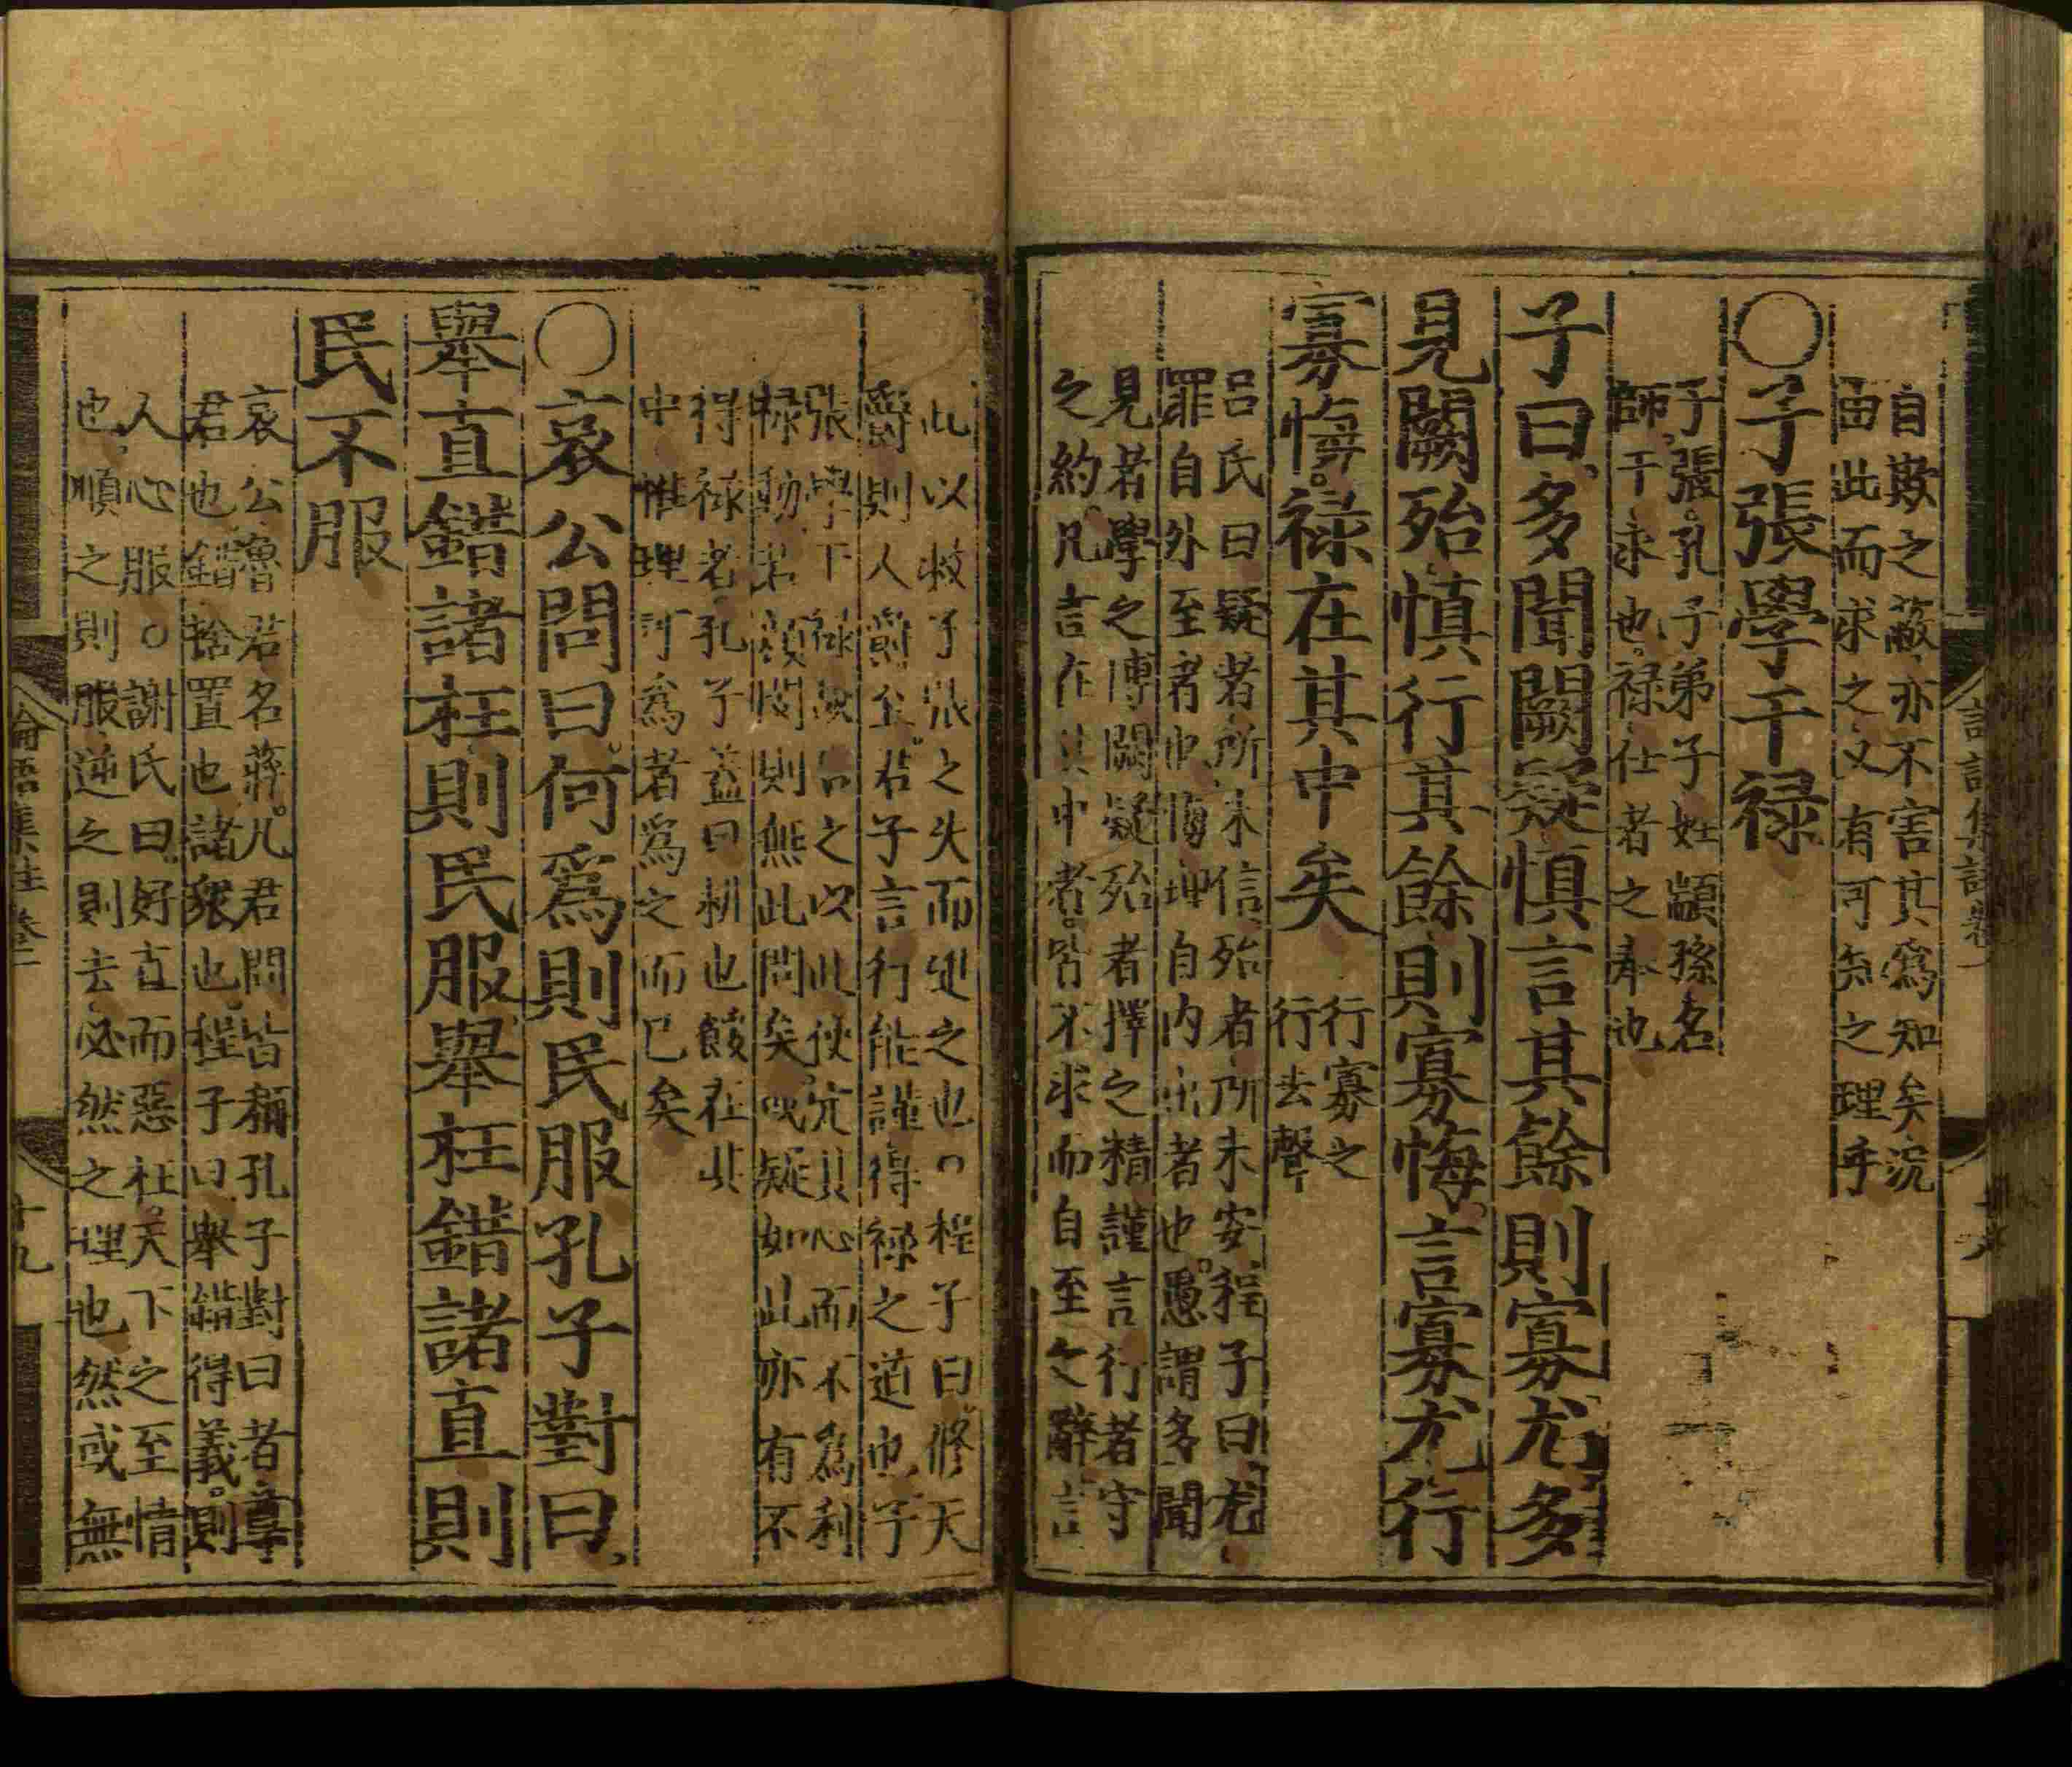 自欺之蔽亦不害其爲知矣況
由此而求之又有可知之理乎
〇子張學干祿
子張孔子弟子姓顓孫名
師干求也祿仕者之奉也
子曰多聞闕疑慎言其餘則寡尤多
見闕殆慎行其餘則寡悔言寡尤行
寡悔祿在其中矣
行寡之
行去聲
呂氏曰疑者所未信殆者所未安程子曰尤
罪自外至者也悔理自内出者也愚謂多聞
見者學之博闕疑殆者擇之精謹言行者守
之約凡言在其中者皆不求而自至之辭言
此以救子張之失而進之也〇程子曰修天
爵則人爵至君子言行能謹得祿之道也子
張學干祿故告之以此使定其心而不爲利
祿動若顏閔則無此問矣或疑如此亦有不
得祿者孔子蓋曰耕也餒在其
中惟理可爲者爲之而已矣
〇哀公問曰何爲則民服孔子對曰
舉直錯諸枉則民服舉枉錯諸直則
民不服
哀公魯君名蔣凡君問皆稱孔子對曰者尊
君也錯捨置也諸衆也程子曰舉錯得義則
人心服〇謝氏曰好直而惡枉天下之至情
也順之則服逆之則去必然之理也然或無
論語集註卷一
十九